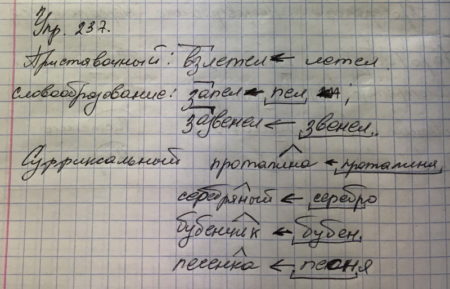 Упр. 237.
Приставочный: взлетел ← летел
словообразование: запел ← пел;
зазвенел ← звенел.
Суффиксальный проталина ← проталина,
серебряный ← серебро
бубенчик ← бубен,
песенка ← песня